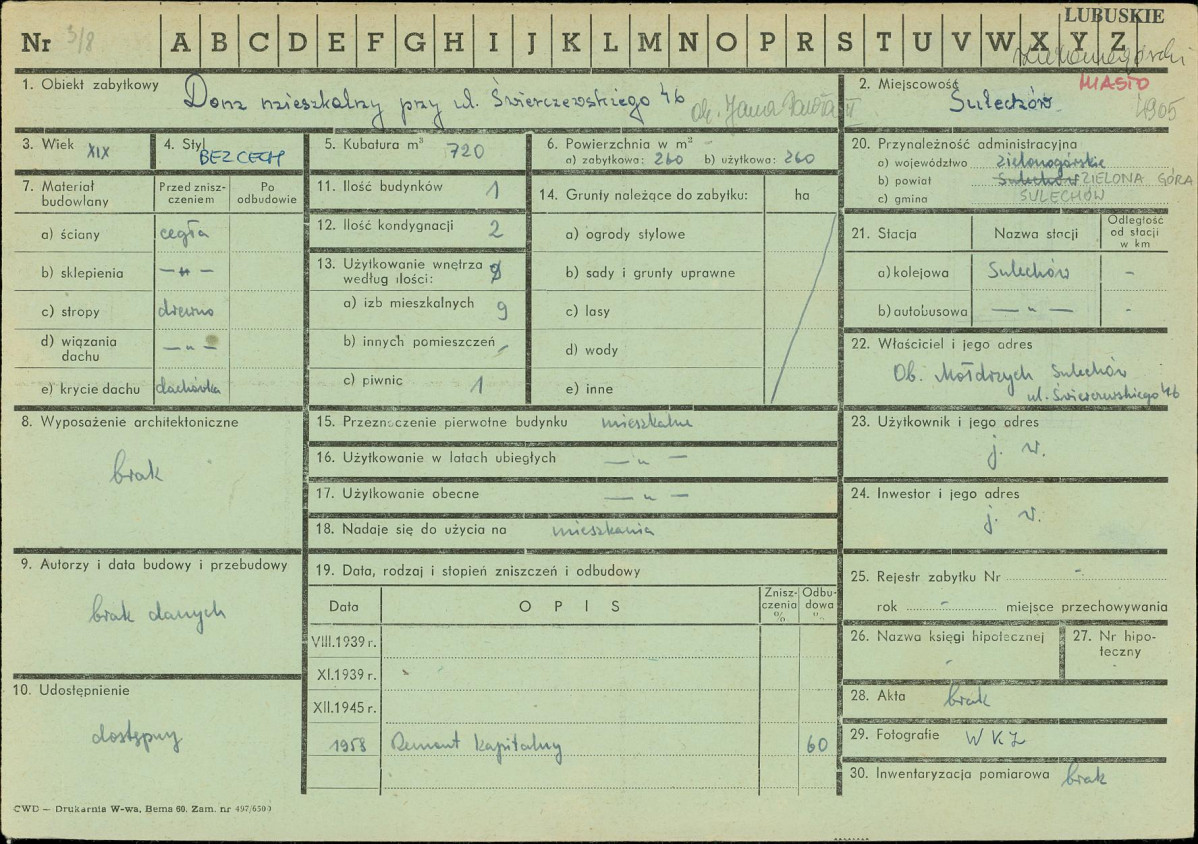 LUBUSKIE
Nr 3/8 A B C D E F G H I J K L M N O P R S T U V W X Y Z
zielonogórski
1. Obiekt zabytkowy Dom mieszkalny przy ul. Świerczewskiego 46 ob. Jana Pawła II
2. Miejscowość MIASTO
Sulechów 4905
3. Wiek XIX
4. Styl BEZ CECH
5. Kubatura m³ 720
6. Powierzchnia w m²
a) zabytkowa: 260 b) użytkowa: 260
20. Przynależność administracyjna
a) województwo zielonogórskie
b) powiat Sulechów ZIELONA GÓRA
c) gmina SULECHÓW
7. Materiał budowlany
Przed znisz-
czeniem
Po
odbudowie
a) ściany cegła
b) sklepienia — " —
c) stropy drewno
d) wiązania
dachu — " —
e) krycie dachu dachówka
11. Ilość budynków 1
12. Ilość kondygnacji 2
13. Użytkowanie wnętrza
według ilości:
a) izb mieszkalnych 9
b) innych pomieszczeń -
c) piwnic 1
14. Grunty należące do zabytku: ha
a) ogrody stylowe
b) sady i grunty uprawne
c) lasy
d) wody
e) inne
21. Stacja Nazwa stacji
Odległość
od stacji
w km
a) kolejowa Sulechów -
b) autobusowa — " — -
22. Właściciel i jego adres
Ob. Mołdrzych Sulechów
ul. Świerczewskiego 46
8. Wyposażenie architektoniczne
brak
15. Przeznaczenie pierwotne budynku mieszkalne
16. Użytkowanie w latach ubiegłych — " —
17. Użytkowanie obecne — " —
18. Nadaje się do użycia na mieszkania
23. Użytkownik i jego adres
j. w.
24. Inwestor i jego adres
j. w.
9. Autorzy i data budowy i przebudowy
brak danych
10. Udostępnienie
dostępny
19. Data, rodzaj i stopień zniszczeń i odbudowy
Data OPIS
Znisz-
czenia
%
Odbu-
dowa
%
VIII.1939 r.
XI.1939 r.
XII.1945 r.
1958 Remont kapitalny 60
25. Rejestr zabytku Nr -
rok - miejsce przechowywania
26. Nazwa księgi hipotecznej
-
27. Nr hipo-
teczny
-
28. Akta brak
29. Fotografie WKZ
30. Inwentaryzacja pomiarowa brak
CWD — Drukarnia W-wa, Bema 60. Zam. nr 497/6500